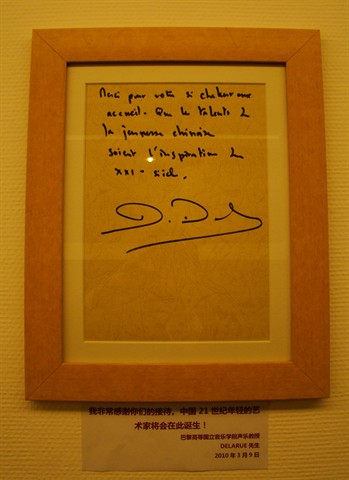 Merci pour votre si chaleureux
accueil. Que les talents de
la jeunesse chinoise
soient l'inspiration du
XXI - siècle.
D. Del
我非常感谢你们的接待，中国 21 世纪年轻的艺
术家将会在此诞生！
巴黎高等国立音乐学院声乐教授
DELARUE 先生
2010 年 3 月 9 日